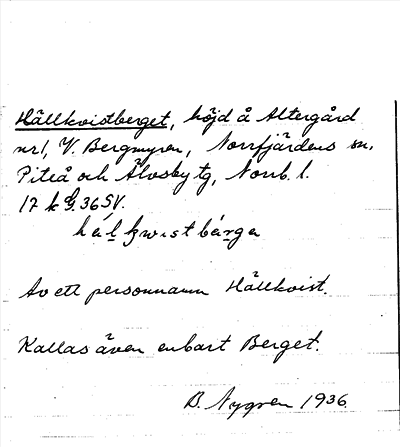 Hällkvistberget, höjd å Altergård
nr 1, V. Bergmyren, Norrfjärdens sn,
Piteå och Älvsby tg, Norrb. l.
17 k G. 36 SV.
Av ett personnamn Hällkvist.
Kallas även enbart Berget.
B. Nygren 1936.